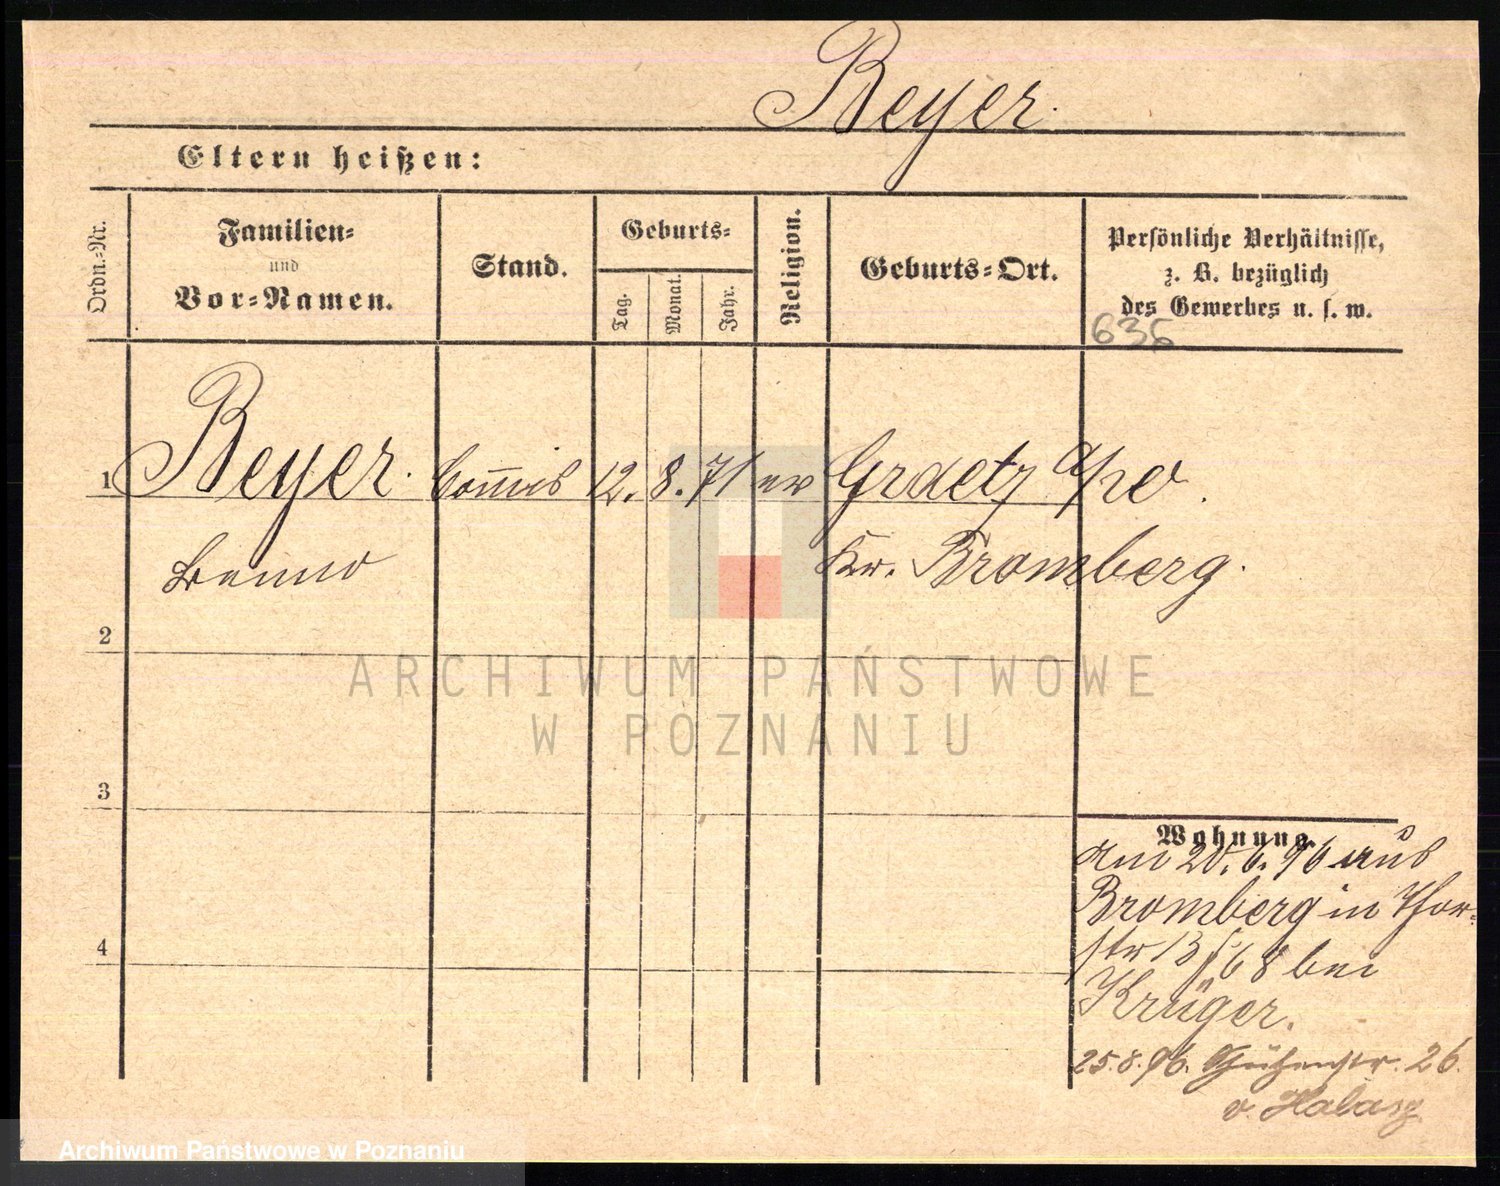 Beyer.
Eltern heißen:
Ordn.-Nr.
Familien-
und
Vor-Namen.
Stand.
Geburts-
Tag.
Monat.
Jahr.
Religion.
Geburts-Ort.
Persönliche Verhältnisse,
z. B. bezüglich
des Gewerbes u. s. w.
636
1 Beyer. Commis 12. 8. 71 ev Graetz a/po.
Benno Kr. Bromberg.
2
ARCHIWUM PAŃSTWOWE
W POZNANIU
3
Wohnung.
am 20. 6. 96 aus
Bromberg in Thor-
str 13 68 bei
Krüger.
4
25. 8. 96. 26.
v.
Archiwum Państwowe w Poznaniu